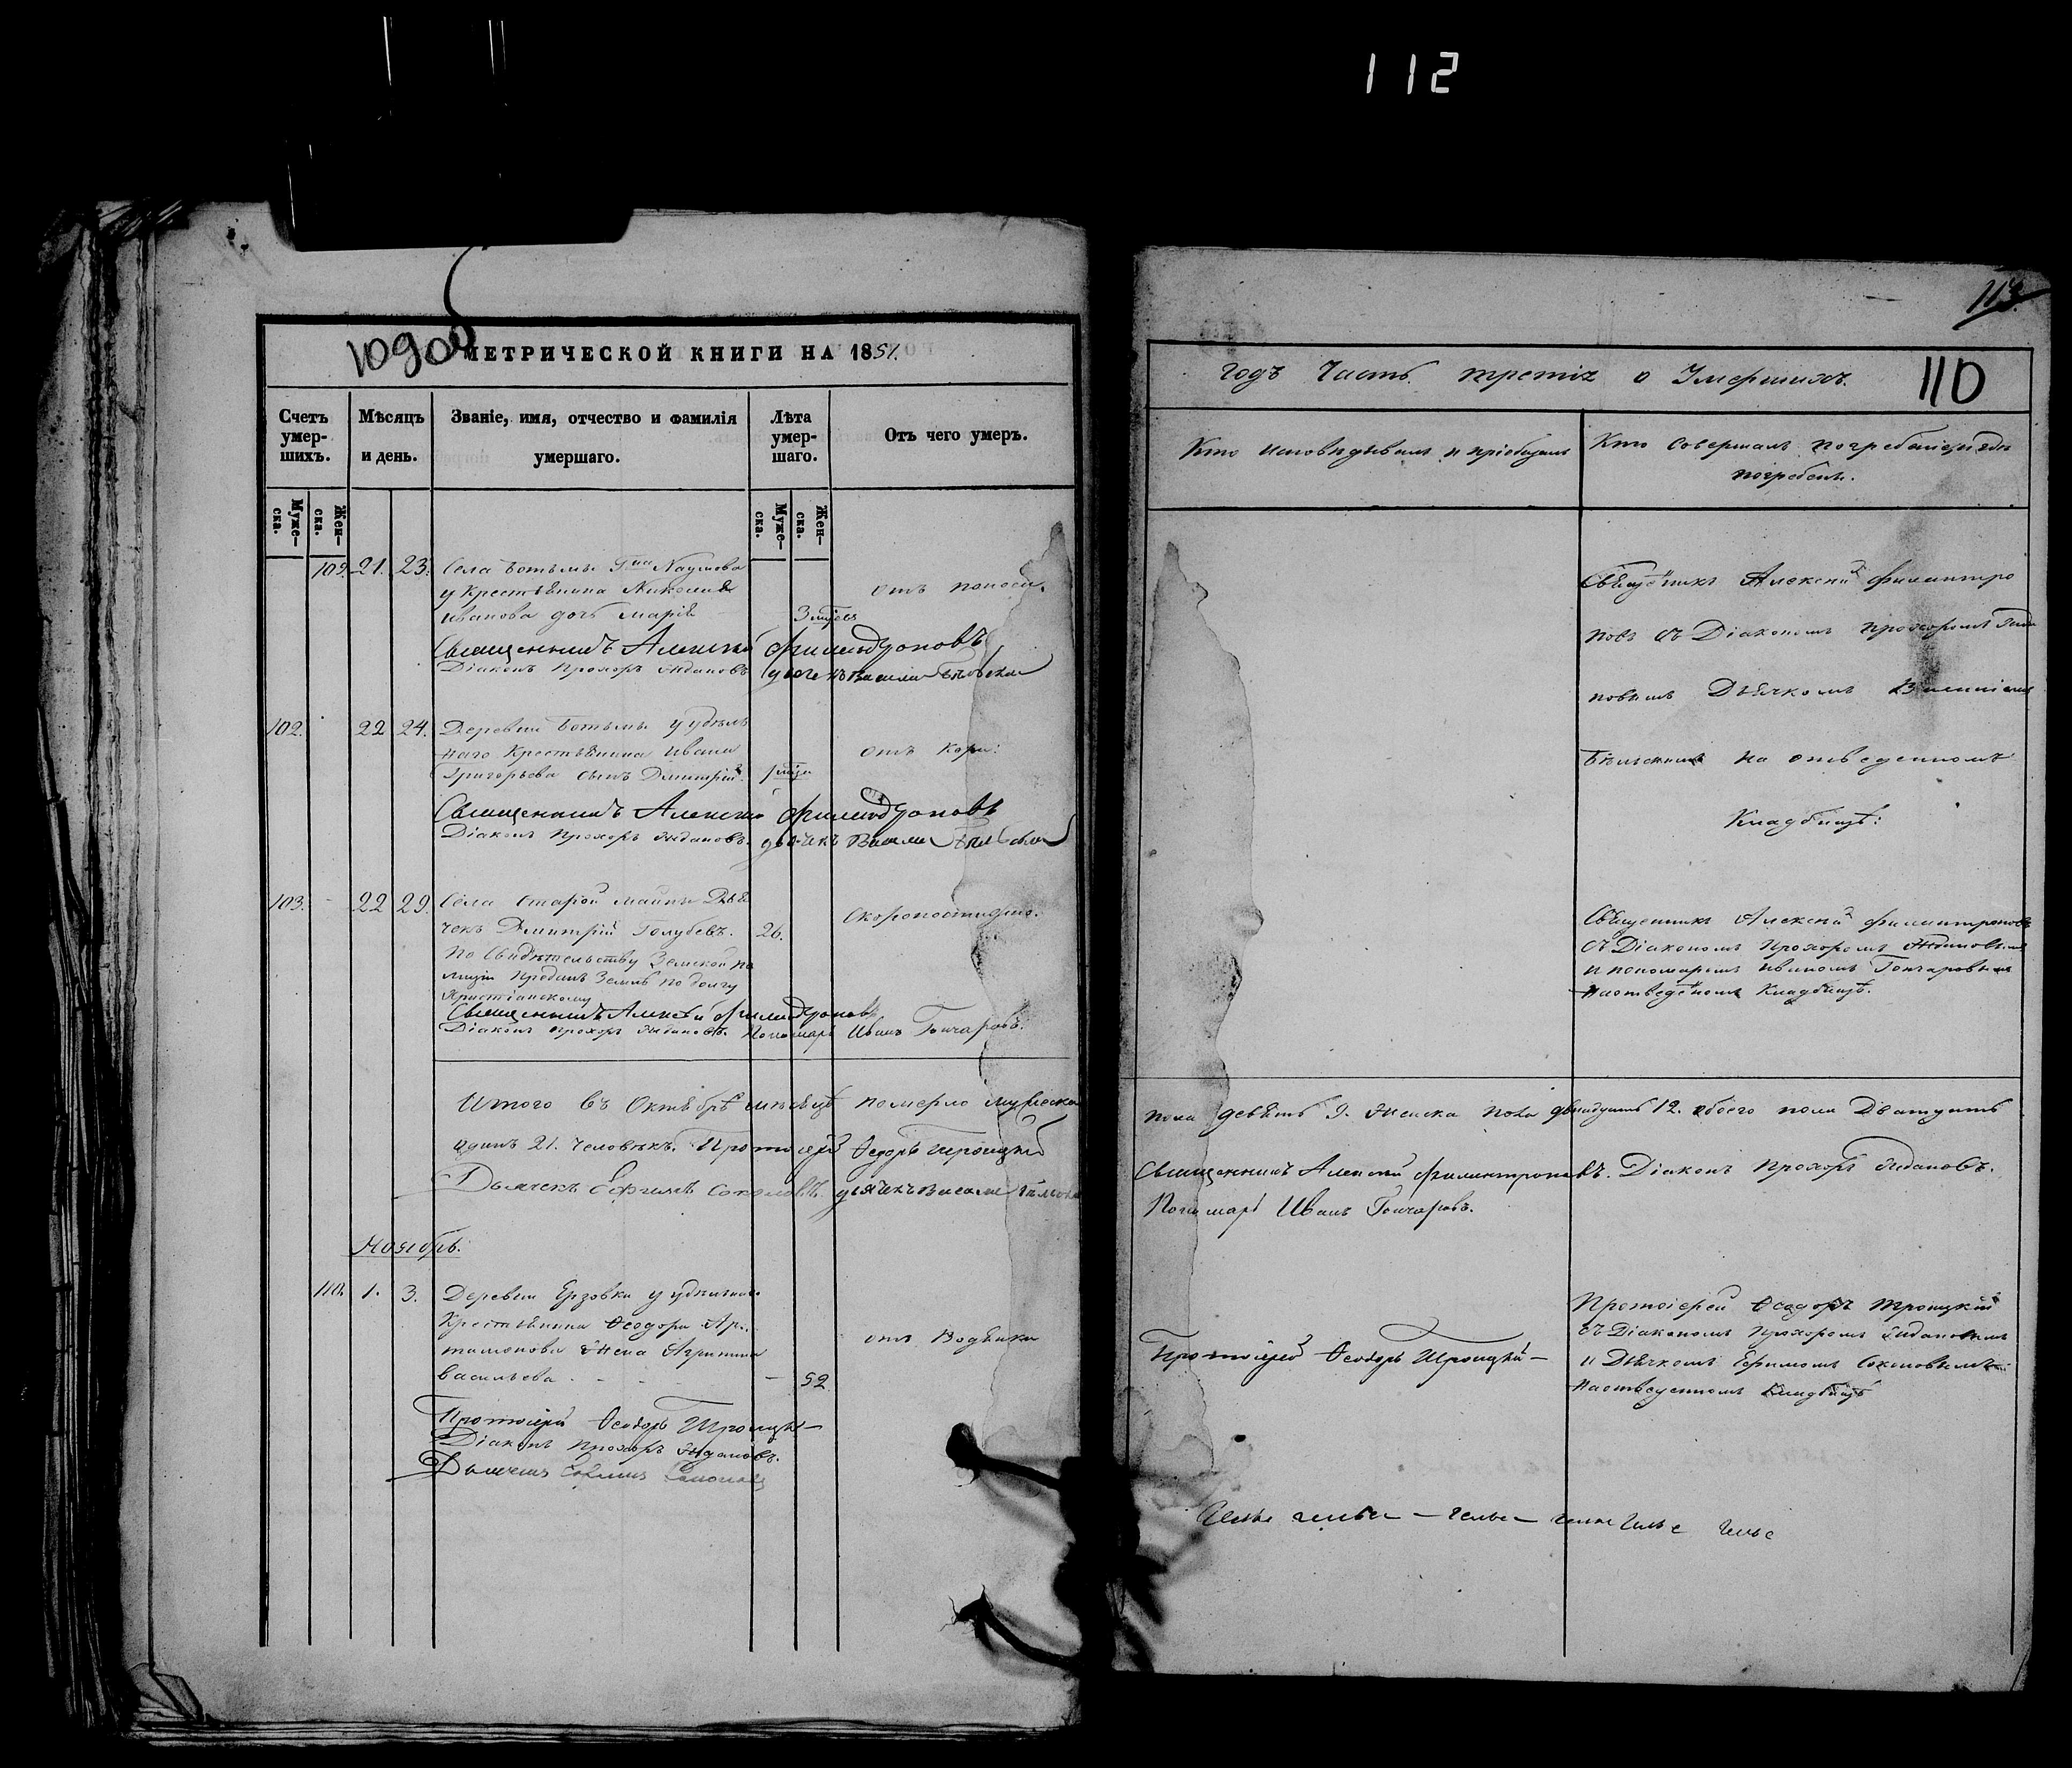 112
109об
МЕТРИЧЕСКОЙ КНИГИ НА 1851.
Счетъ умер-шихъ.
Мѣсяцъ и день.
Званіе, имя, отчество и фамилія умершаго.
Лѣта умер-шаго.
Отъ чего умеръ.
Муже-ска.
Жен-ска.
Муже-ска.
Жен-ска.
109. 21. 23. Села Ботьмы Гна Наумова
у Крестьянина Николая
Иванова дочь Марія
3 мѣс
отъ поноса.
Священникъ Алексій Филантроповъ
Діаконъ Прохоръ Ждановъ Дьячекъ Василій
102. 22 24. Деревни Ботьмы у удѣль
наго Крестьянина Ивана
Григорьева сынъ Дмитрій
отъ Кори.
Священникъ Алексій Филантроповъ
Діаконъ Прохоръ Ждановъ. Дьячекъ Василій
103. 22 29. Села Старой Майны Дья
чекъ Дмитрій Голубевъ. 26.
Скоропостижно.
По Свидѣтельству Земской по
лиціи преданъ Землѣ по долгу
Христіанскому
Священникъ Алексѣй Филантроповъ
Діаконъ Прохоръ Ждановъ. Пономарь Иванъ Гончаровъ.
Итого въ Октябрѣ мѣсяцѣ померло мужеска
одинъ 21. человѣкъ. Протоіерей Ѳедоръ Троицкій
Дьячекъ Ефимъ Соколовъ. Дьячекъ Василій
Ноябрь.
110. 1. 3. Деревни Ерзовки у удѣльнаго
Крестьянина Ѳеодора Ар
тамонова жена Агрипина
Васильева - 52
отъ Водянки
Протоіерей Ѳеодоръ Троицкій
Діаконъ Прохоръ Ждановъ.
Дьячекъ Ефимъ Соколовъ
113.
годъ Часть третія о Умершихъ.
110
Кто исповѣдывалъ и пріобщалъ
Кто совершалъ погребеніе и гдѣ
погребенъ.
Священникъ Алексій Филантро
повъ съ Діакономъ Прохоромъ Жда
новымъ Дьячкомъ Василіемъ
на отведенномъ
Кладбищѣ.
Священникъ Алексій Филантроповъ
съ Діакономъ Прохоромъ Ждановымъ
и пономаремъ Иваномъ Гончаровымъ
на отведенномъ Кладбищѣ.
пола девять 9. Женска пола двѣнадцать 12. обоего пола Двадцать
Священникъ Алексій Филантроповъ. Діаконъ Прохоръ Ждановъ.
Пономарь Иванъ Гончаровъ.
Протоіерей Ѳеодоръ Троицкій
Протоіерей Ѳеодоръ Троицкій
съ Діакономъ Прохоромъ Ждановымъ
и Дьячкомъ Ефимомъ Соколовымъ
на отведенномъ Кладбищѣ